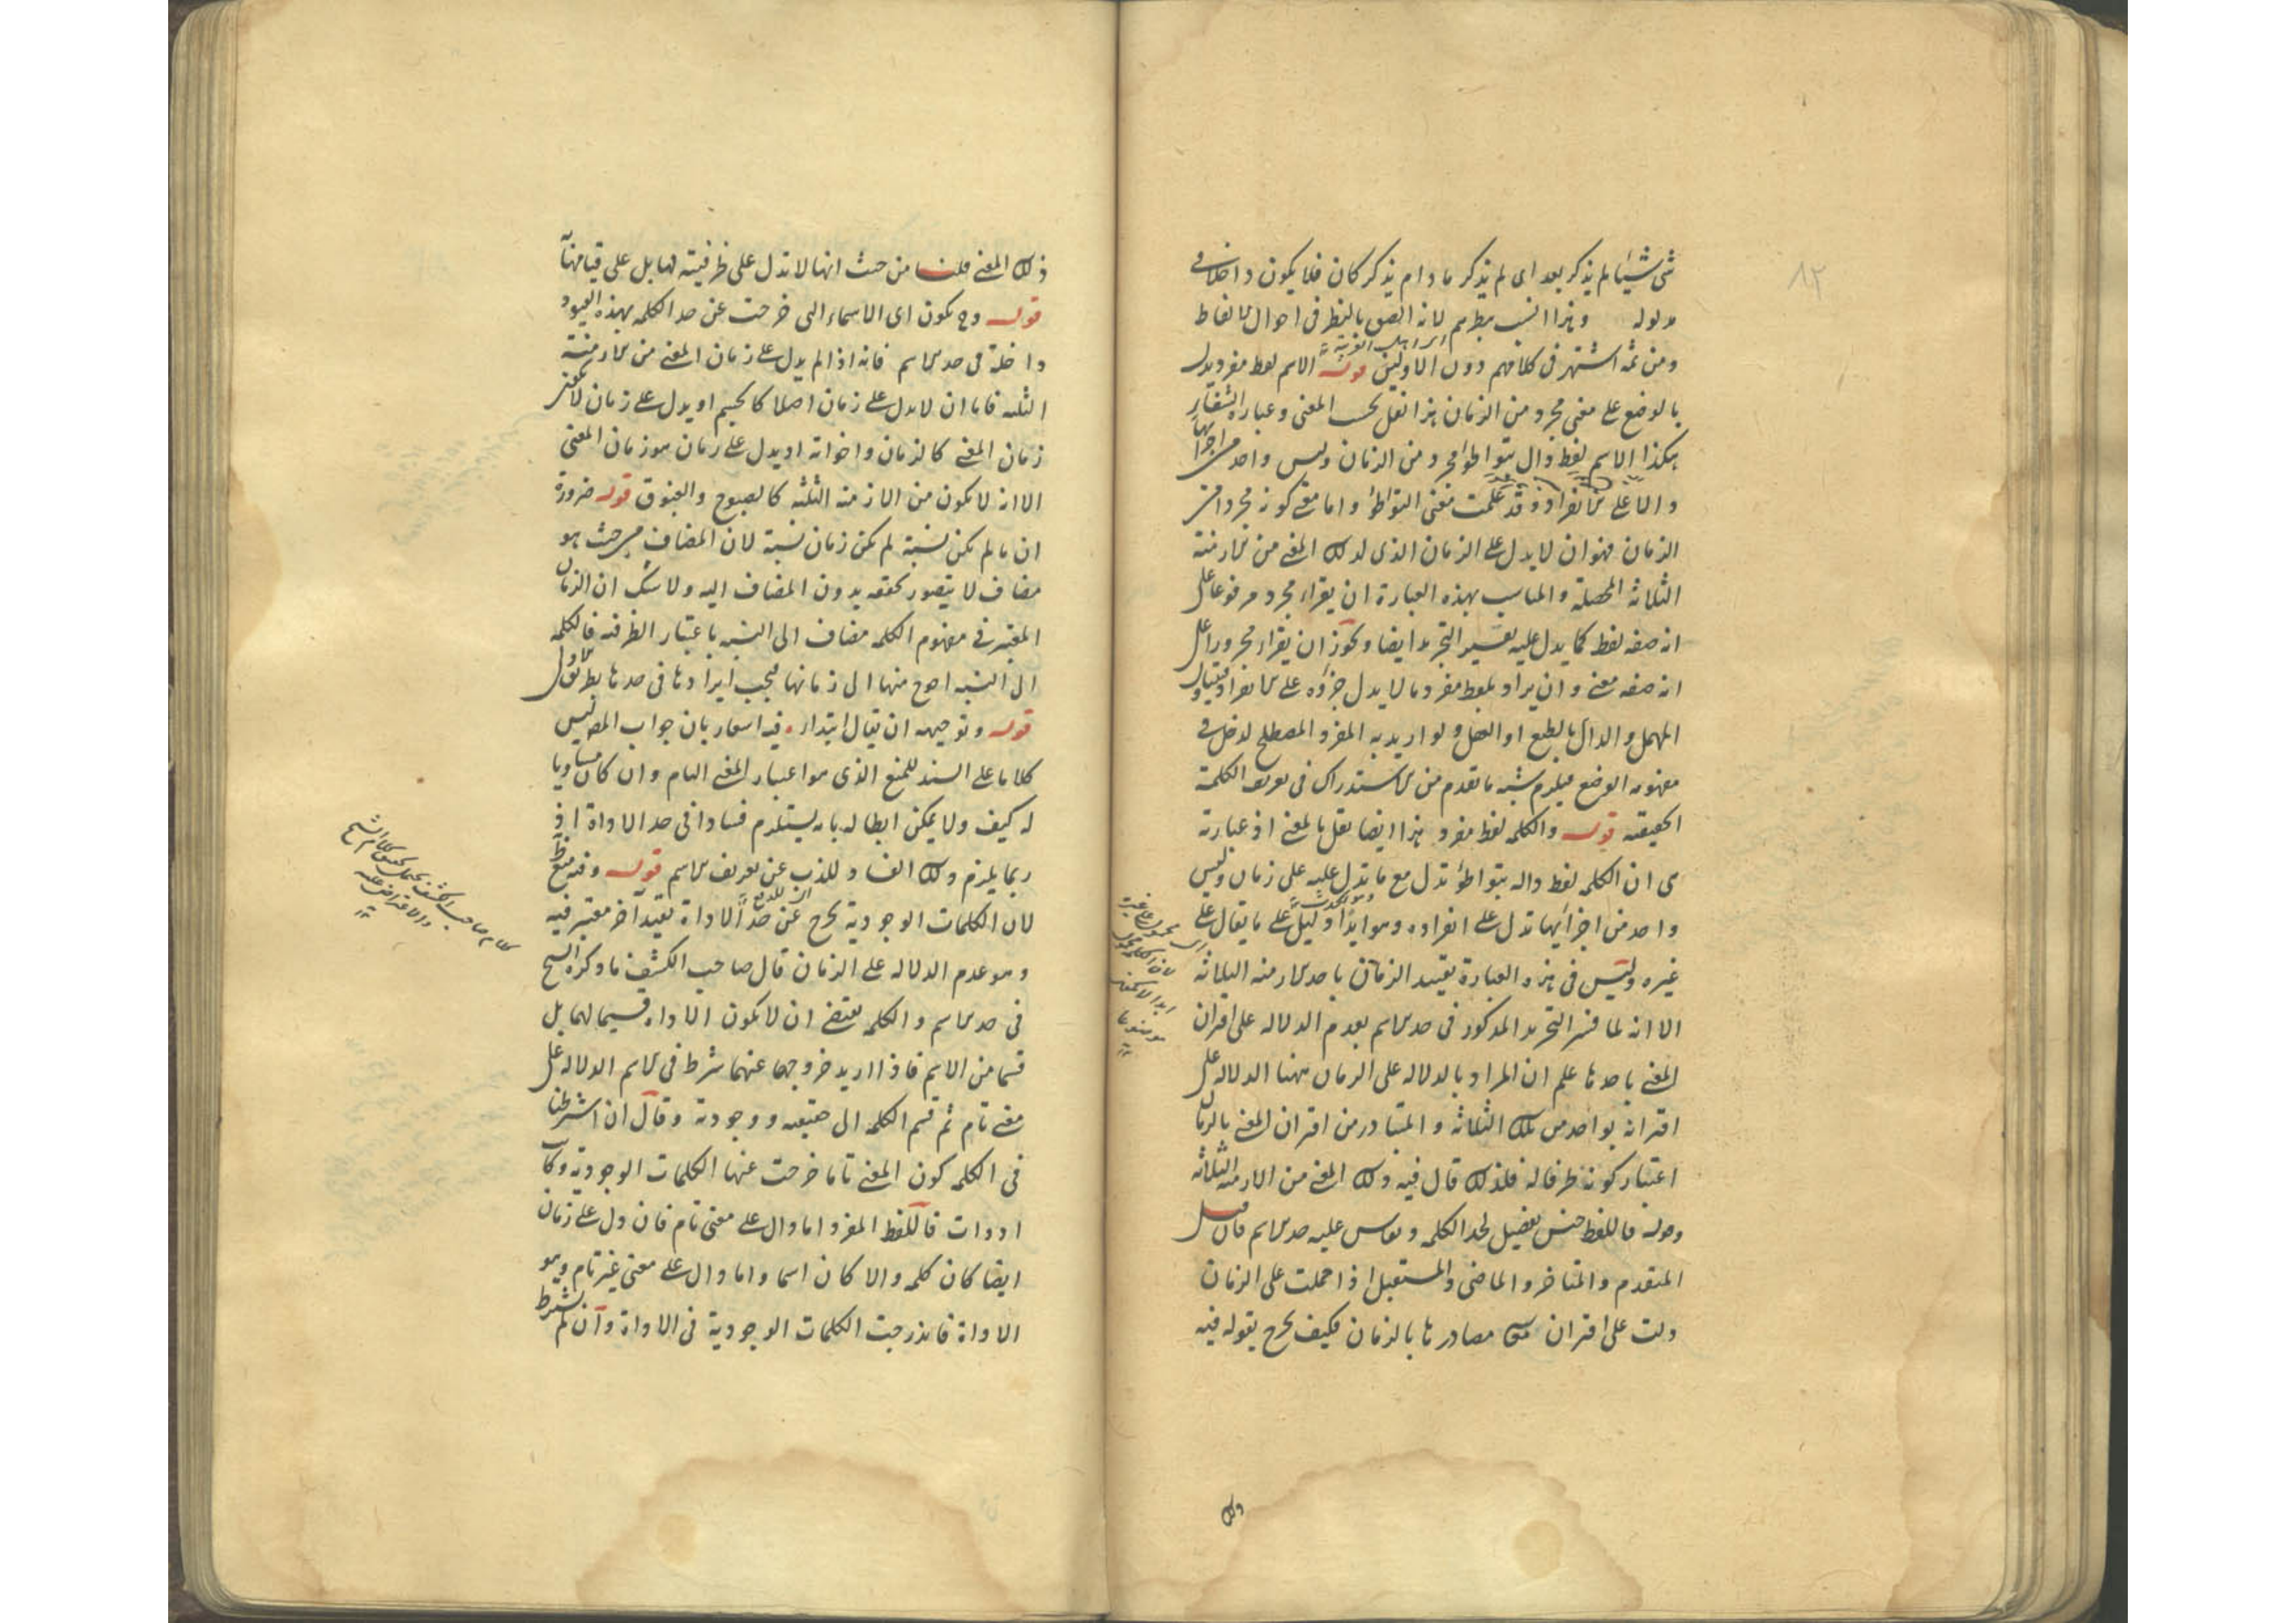 ٨٢
شئ شيئا لم يذكر بعد اى لم يذكر ما دام يذكر كان فلا يكون داخلا فى
مدلوله وهذا انسب بنظرهم لانه الصق بالنظر فى احوال الالفاظ
ومن ثمه اشتهر فى كلامهم دون الاولين قوله الاسم لفظ مفرد يدل
بالوضع على معنى مجرد من الزمان هذا نقل بحسب المعنى وعبارة الشفاء
هكذا الاسم لفظ دال بتواطؤ مجرد من الزمان وليس واحد من اجزائها
دالا على الانفراد وقد علمت معنى التواطؤ واما معنى كونه مجردا من
الزمان فهو ان لا يدل على الزمان الذى لذلك المعنى من الازمنة
الثلاثة المحصلة والمناسب بهذه العبارة ان يقراء مجرد مرفوعا على
انه صفه لفظ كما يدل عليه تفسير التجريد ايضا ويجوز ان يقراء مجرورا على
انه صفه معنى وان يراد بلفظ مفرد ما لا يدل جزؤه على الانفراد فيتناول
المهمل والدال بالطبع او العقل ولو اريد به المفرد المصطلح لدخل فى
مفهومه الوضع فيلزم شبه ما تقدم من الاستدراك فى تعريف الكلمة
الحقيقة قوله والكلمه لفظ مفرد هذا ايضا نقل بالمعنى اذ عبارته
هى ان الكلمه لفظ داله بتواطؤ تدل مع ما تدل عليه على زمان وليس
واحد من اجزايها تدل على انفراده وهو ابدا دليل على ما يقال على
غيره وليس فى هذه العبارة تقييد الزمان باحد الازمنه الثلاثه
الا انه لما فسر التجريد المذكور فى حد الاسم بعدم الدلاله على اقتران
المعنى باحدها علم ان المراد بالدلاله على الزمان ههنا الدلاله على
اقترانه بواحد من تلك الثلاثة والمتبادر من اقتران المعنى بالزمان
اعتبار كونه ظرفا له فلذلك قال فيه ذلك المعنى من الازمنه الثلاثه
وقوله فاللفظ جنس تفصيل لحد الكلمه وتقاس عليه حد الاسم فان قيل
المتقدم والمتاخر والماضى والمستقبل اذا حملت على الزمان
دلت على اقتران معنى مصادرها بالزمان فكيف يخرج بقوله فيه
ذلك
ذلك المعنى قلنا من حيث انها لا تدل على ظرفيته لها بل على قيامها به
قوله وح يكون اى الاسماء التى خرجت عن حد الكلمه بهذه القيود
داخلة فى حد الاسم فانه اذا لم يدل على زمان المعنى من الازمنة
الثلثه فاما ان لا يدل على زمان اصلا كالجسم او يدل على زمان لا يكون
زمان المعنى كالزمان واخواته او يدل على زمان هو زمان المعنى
الا انه لا يكون من الازمنه الثلثة كالصبوح والغبوق قوله ضرورة
ان ما لم يكن نسبة لم يكن زمان نسبة لان المضاف من حيث هو
مضاف لا يتصور تحققه بدون المضاف اليه ولا شك ان الزمان
المعتبر فى مفهوم الكلمه مضاف الى النسبه باعتبار الظرفيه فالكلمه
الى النسبه احوج منها الى زمانها فيجب ايرادها فى حدها بطريق الاولى
قوله وتوجيهه ان يقال ابتداء فيه اشعار بان جواب المص ليس
كلاما على السند للمنع الذى هو اعتبار المعنى التام وان كان مساويا
له كيف ولا يمكن ابطاله بانه يستلزم فسادا فى حد الاداة اذ
ربما يلزم ذلك الفساد للذب عن تعريف الاسم قوله وفيه نظر
لان الكلمات الوجودية تخرج عن حد الاداة بقيد آخر معتبر فيه
وهو عدم الدلاله على الزمان قال صاحب الكشف ما ذكره الشيخ
فى حد الاسم والكلمه يقتضى ان لا يكون الاداه قسيما لهما بل
قسما من الاسم فاذا اريد خروجها عنهما شرط فى الاسم الدلاله على
معنى تام ثم قسم الكلمه الى حقيقيه ووجوديه وقال ان اشترطنا
فى الكلمه كون المعنى تاما خرجت عنها الكلمات الوجودية وكانت
ادوات فاللفظ المفرد اما دال على معنى تام فان دل على زمان
ايضا كان كلمه والا كان اسما واما دال على معنى غير تام وهو
الاداة فاندرجت الكلمات الوجودية فى الاداة وان لم يشترط
كلام صاحب الكشف يحتمل تحقيق كلام الشيخ
والاعتراض عليه